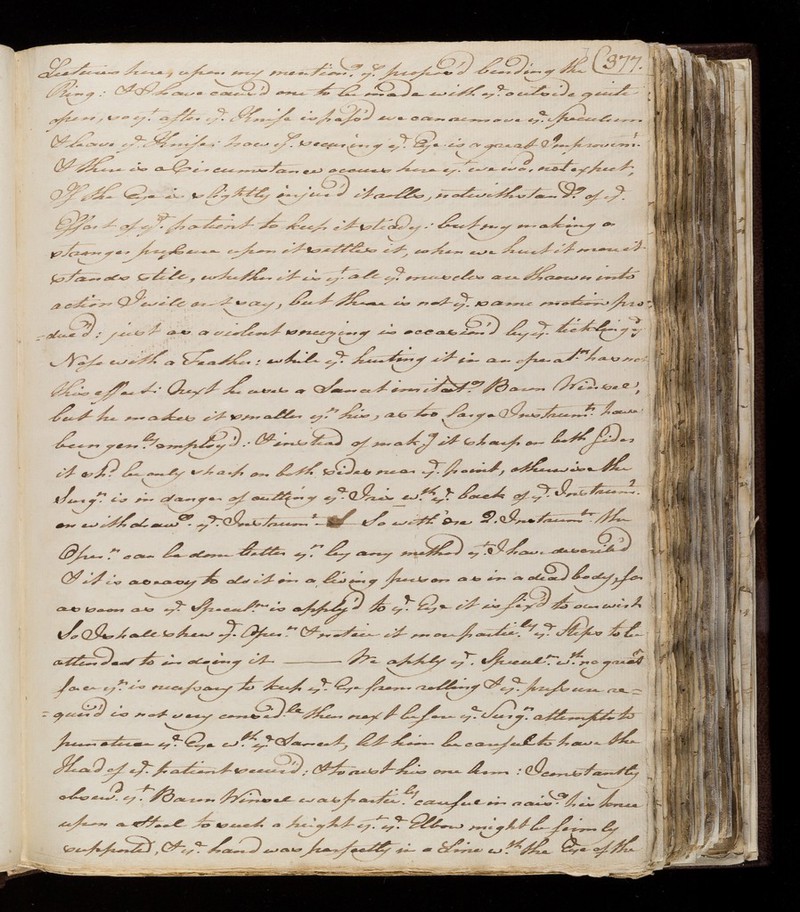 (377.
Lectures here, upon my mention.g yt. propos'd bending the
Ring: & I have caus'd one to be made with ye. outside quite
open, so yt. after ye. Knife is pass'd we can remove ye. Speculum
& leave ye. Knife: how ys. securing ye. Eye is a great Improvmt.
& there is a Circumstance occurs here yt. we wd. not expect;
If the Eye is slightly injur'd it rolls, notwithstandg. of ye.
Effort of ye. patient to keep it steady: but my making a
stronger pressure upon it settles it, when we hurt it more it
stands still, whether it is yt. all ye. muscles are thrown into
action I will not say, but there is not ye. same motion pro=
=duc'd: just as a violent sneezing is occasion'd by ye. tickling ye.
Nose with a Feather: while ye. hurting it in an operatn. has not
this effect: Next he uses a Lancet imitatg. Baron Winsel,
but he makes it smaller yn. his, as too large Instrumts. have
been genly. employ'd: & instead of makg. it sharp on both Sides
it shd. be only sharp on both sides near ye. point, otherwise the
Surgn. is in danger of cutting ye. Iris wth. ye. back of ye. Instrumt.
on withdrawg. ye. Instrumt. So with one 2. Instrumts. the
Opern. can be done better yn. by any method yt. I have describ'd
& it is as easy to do it in a living person as in a dead body, for
as soon as ye. Speculm. is apply'd to ye. Eye it is fix'd to our wish
So I shall shew ye. Opern. & notice it more particly. ye. Steps to be
attended to in doing it —— We apply ye. Speculm. wth. no great
force yn. is necessary to keep ye. Eye from rolling & ye. pressure re=
=quir'd is not very consid.ble then next before ye. Surgn. attempts to
puncture ye. Eye wth. ye. Lancet, let him be careful to have the
Head of ye. patient secur'd; & to rest his one Arm: I constantly
observ'd yt. Baron Winsel was particly. careful in raisg. his knee
upon a Stool to such a height yt. ye. Elbow might be firmly
supported, & ye. hand was perfectly in a Line wth. the Eye of the